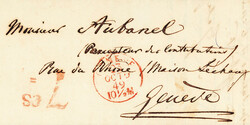 Monsieur Aubanel
Percepteur des Contributions
Rue du Rhône / Maison
Genève
OCTO
49
10½M